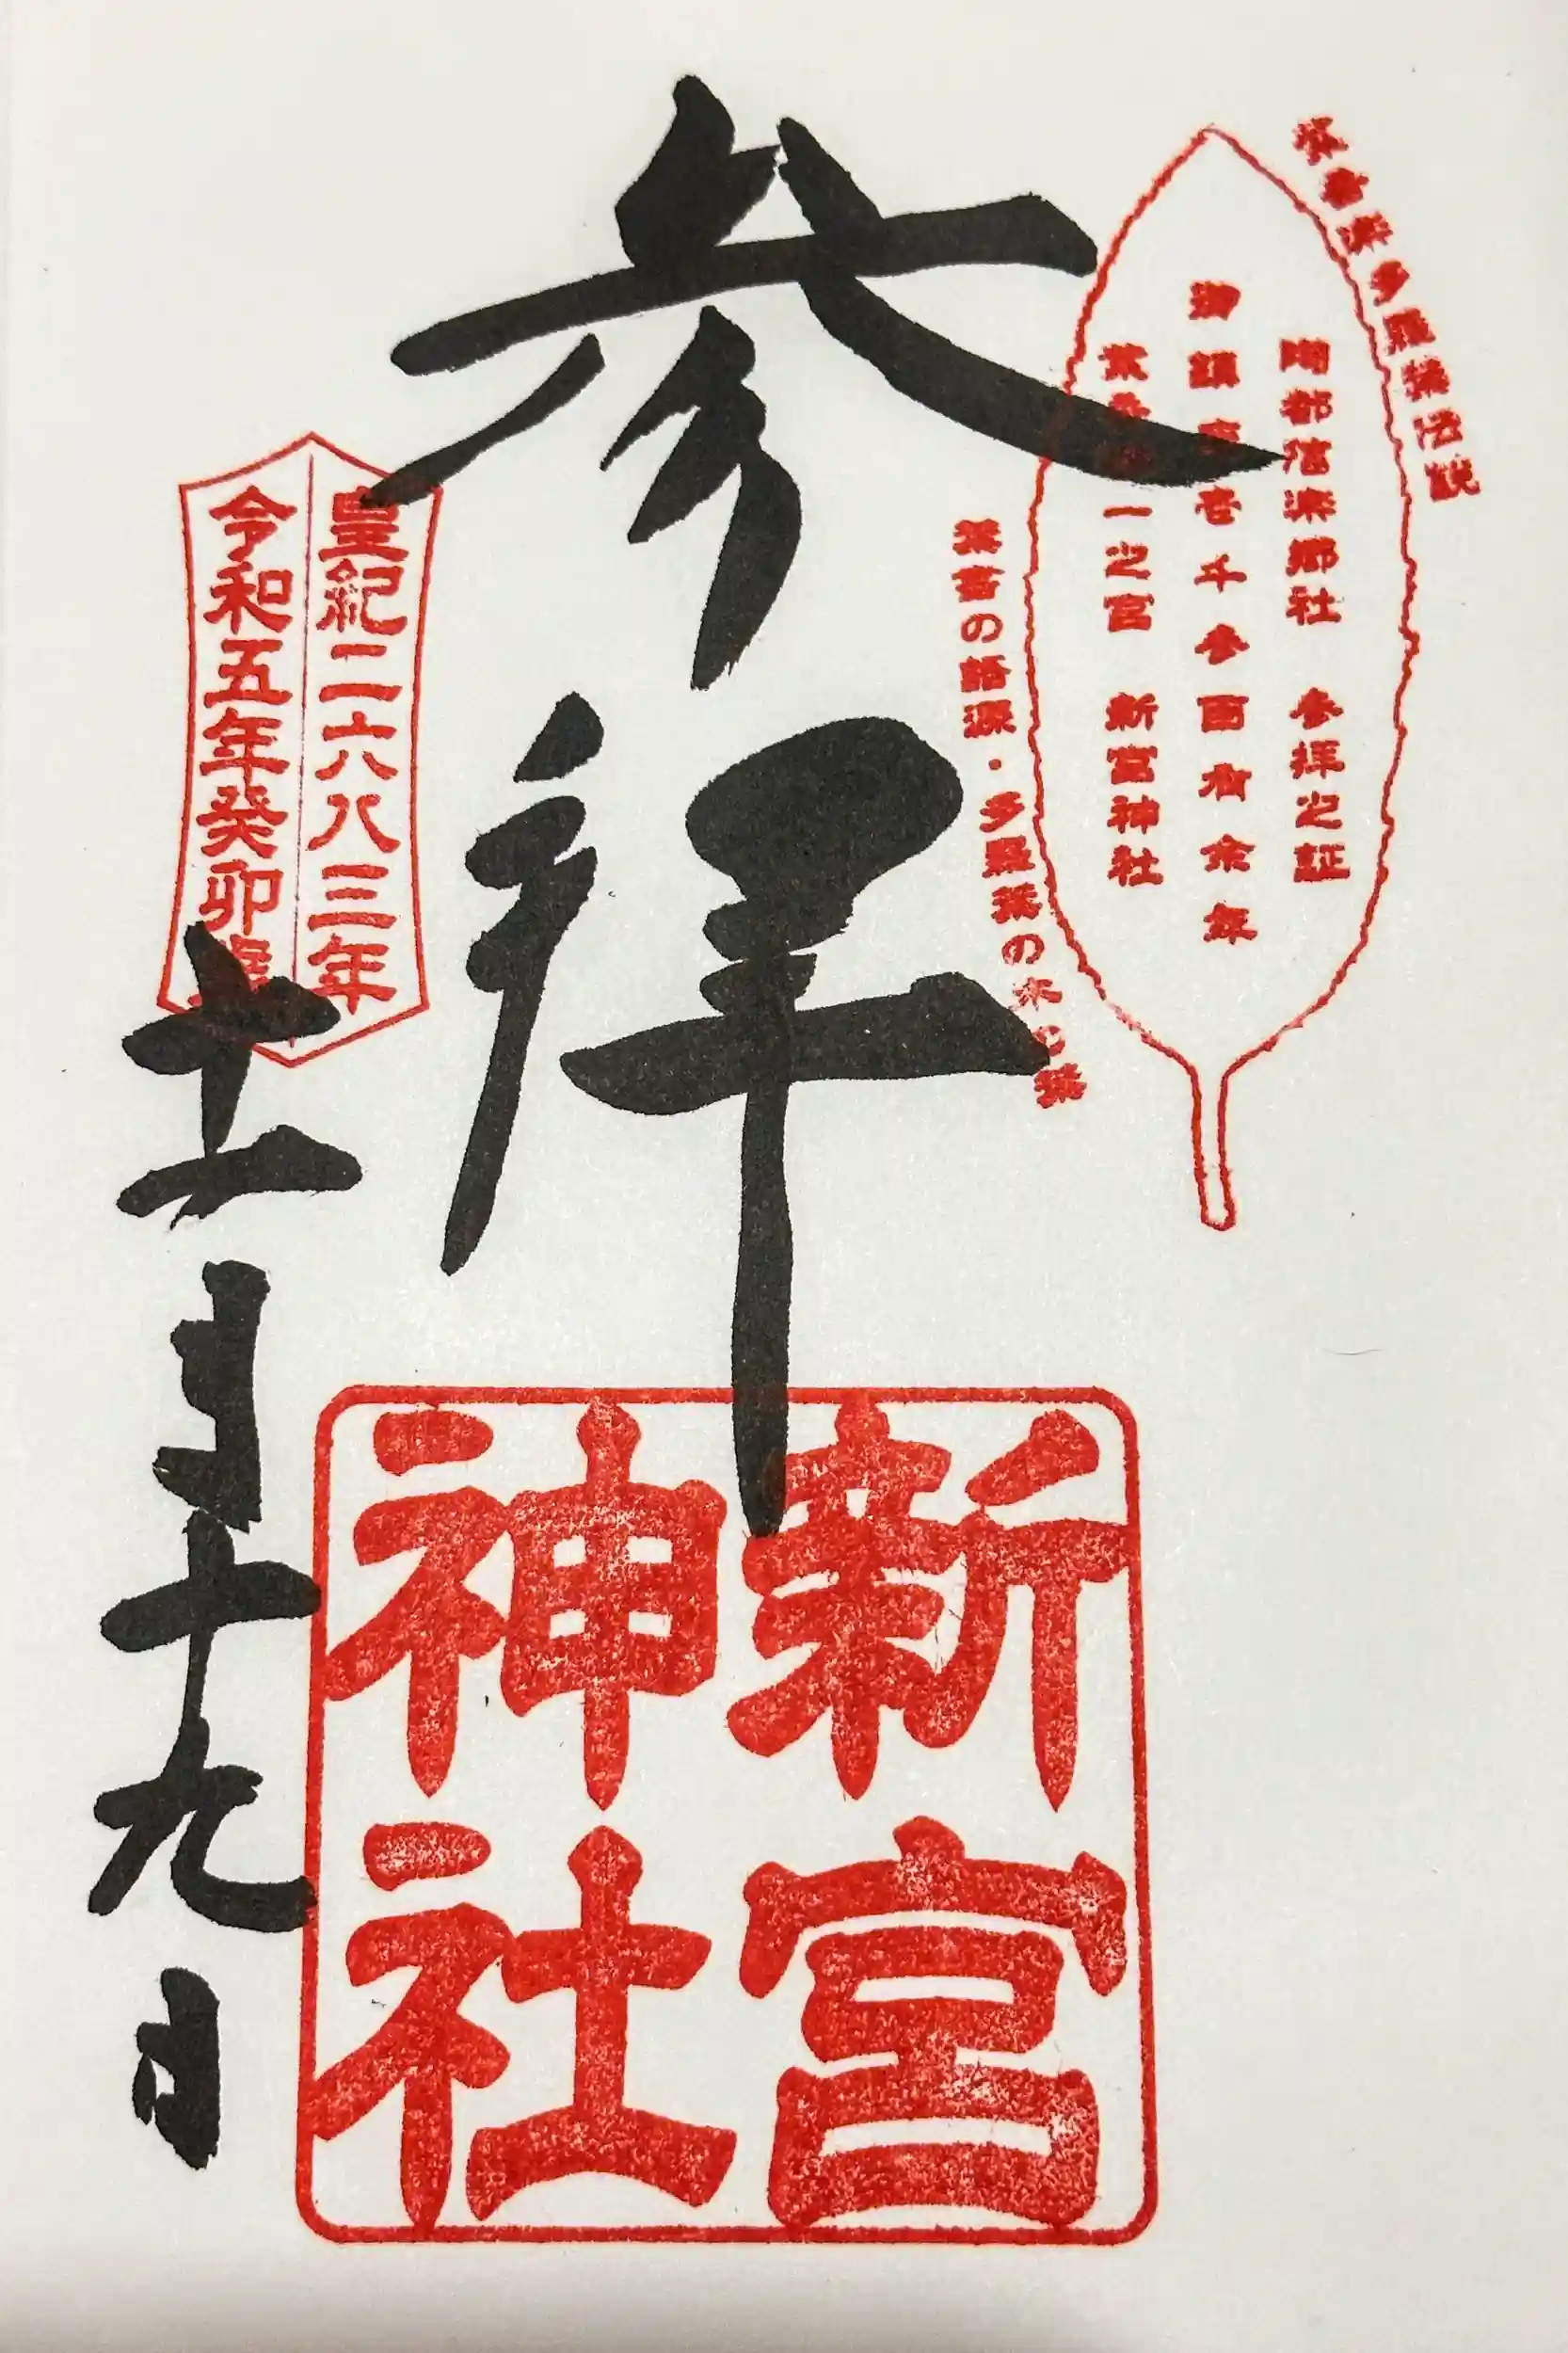 紫香楽多羅葉伝説
陶都信楽郷社 参拝之証
御鎮座壱千参百有余年
紫香楽一之宮 新宮神社
葉書の語源・多羅葉の木の葉
参拝
新宮
神社
皇紀二六八三年
令和五年癸卯歳
十一月十九日